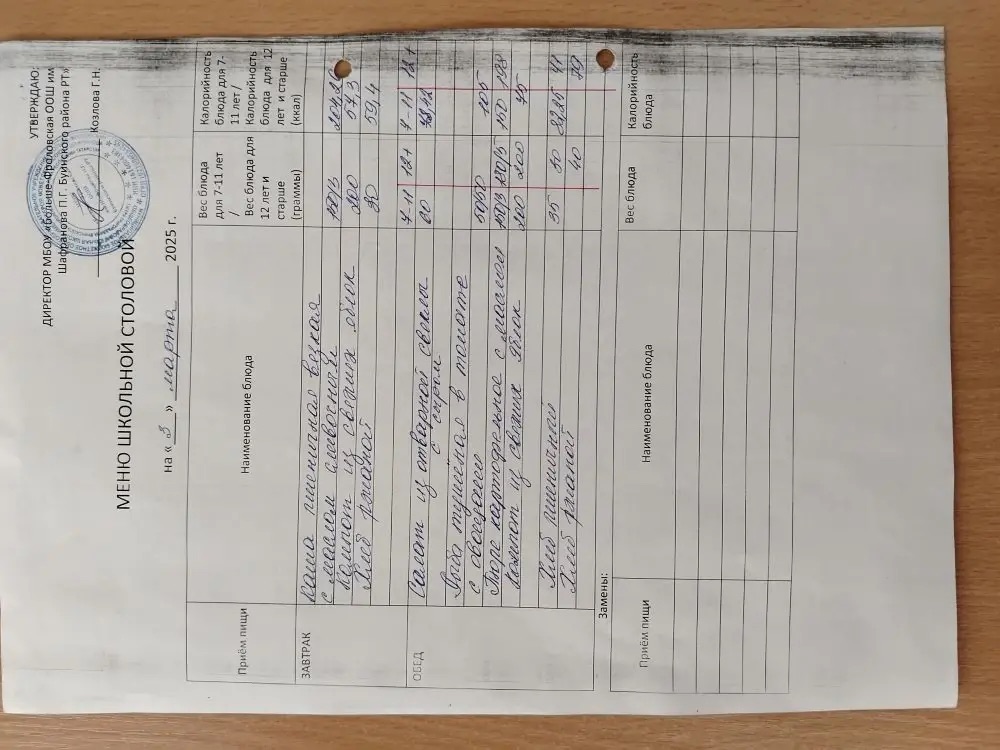 УТВЕРЖДАЮ:
ДИРЕКТОР МБОУ «Больше-Фроловская ООШ им
Шафранова П.Г. Буинского района РТ»
Козлова Г.Н.
МЕНЮ ШКОЛЬНОЙ СТОЛОВОЙ
на « 3 » марта 2025 г.
Приём пищи
Наименование блюда
Вес блюда для 7-11 лет / Вес блюда для 12 лет и старше (граммы)
Калорийность блюда для 7-11 лет / Калорийность блюда для 12 лет и старше (ккал)
ЗАВТРАК
Каша пшеничная вязкая
с маслом сливочным 150/3
Компот из свежих яблок 200 57,3
Хлеб ржаной 30 59,4
ОБЕД 7-11 12+ 7-11 12+
Салат из отварной свеклы 60
с сыром
Рыба тушёная в томате
с овощами 50/50 105
Пюре картофельное с маслом 150/3 180/5 150 198
Компот из свежих яблок 200 200
Хлеб пшеничный 35 50 82,25
Хлеб ржаной 40 79
Замены:
Приём пищи
Наименование блюда
Вес блюда
Калорийность блюда